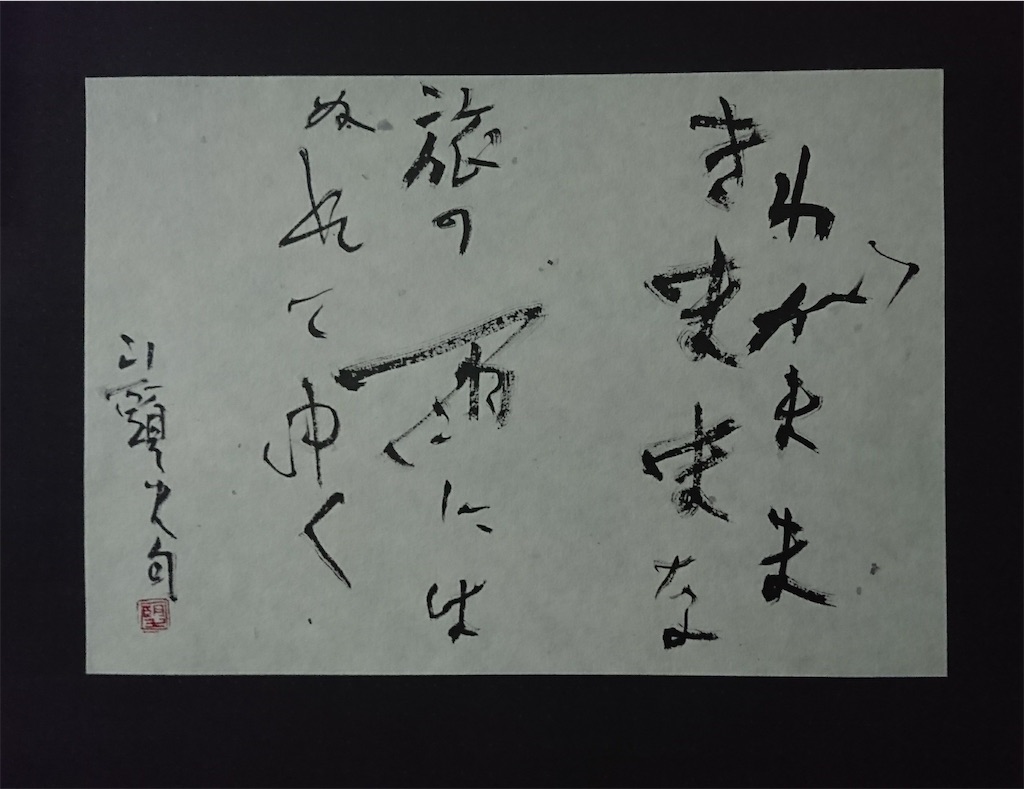 わがまま
きままな
旅の雨には
ぬれてゆく
山頭火句